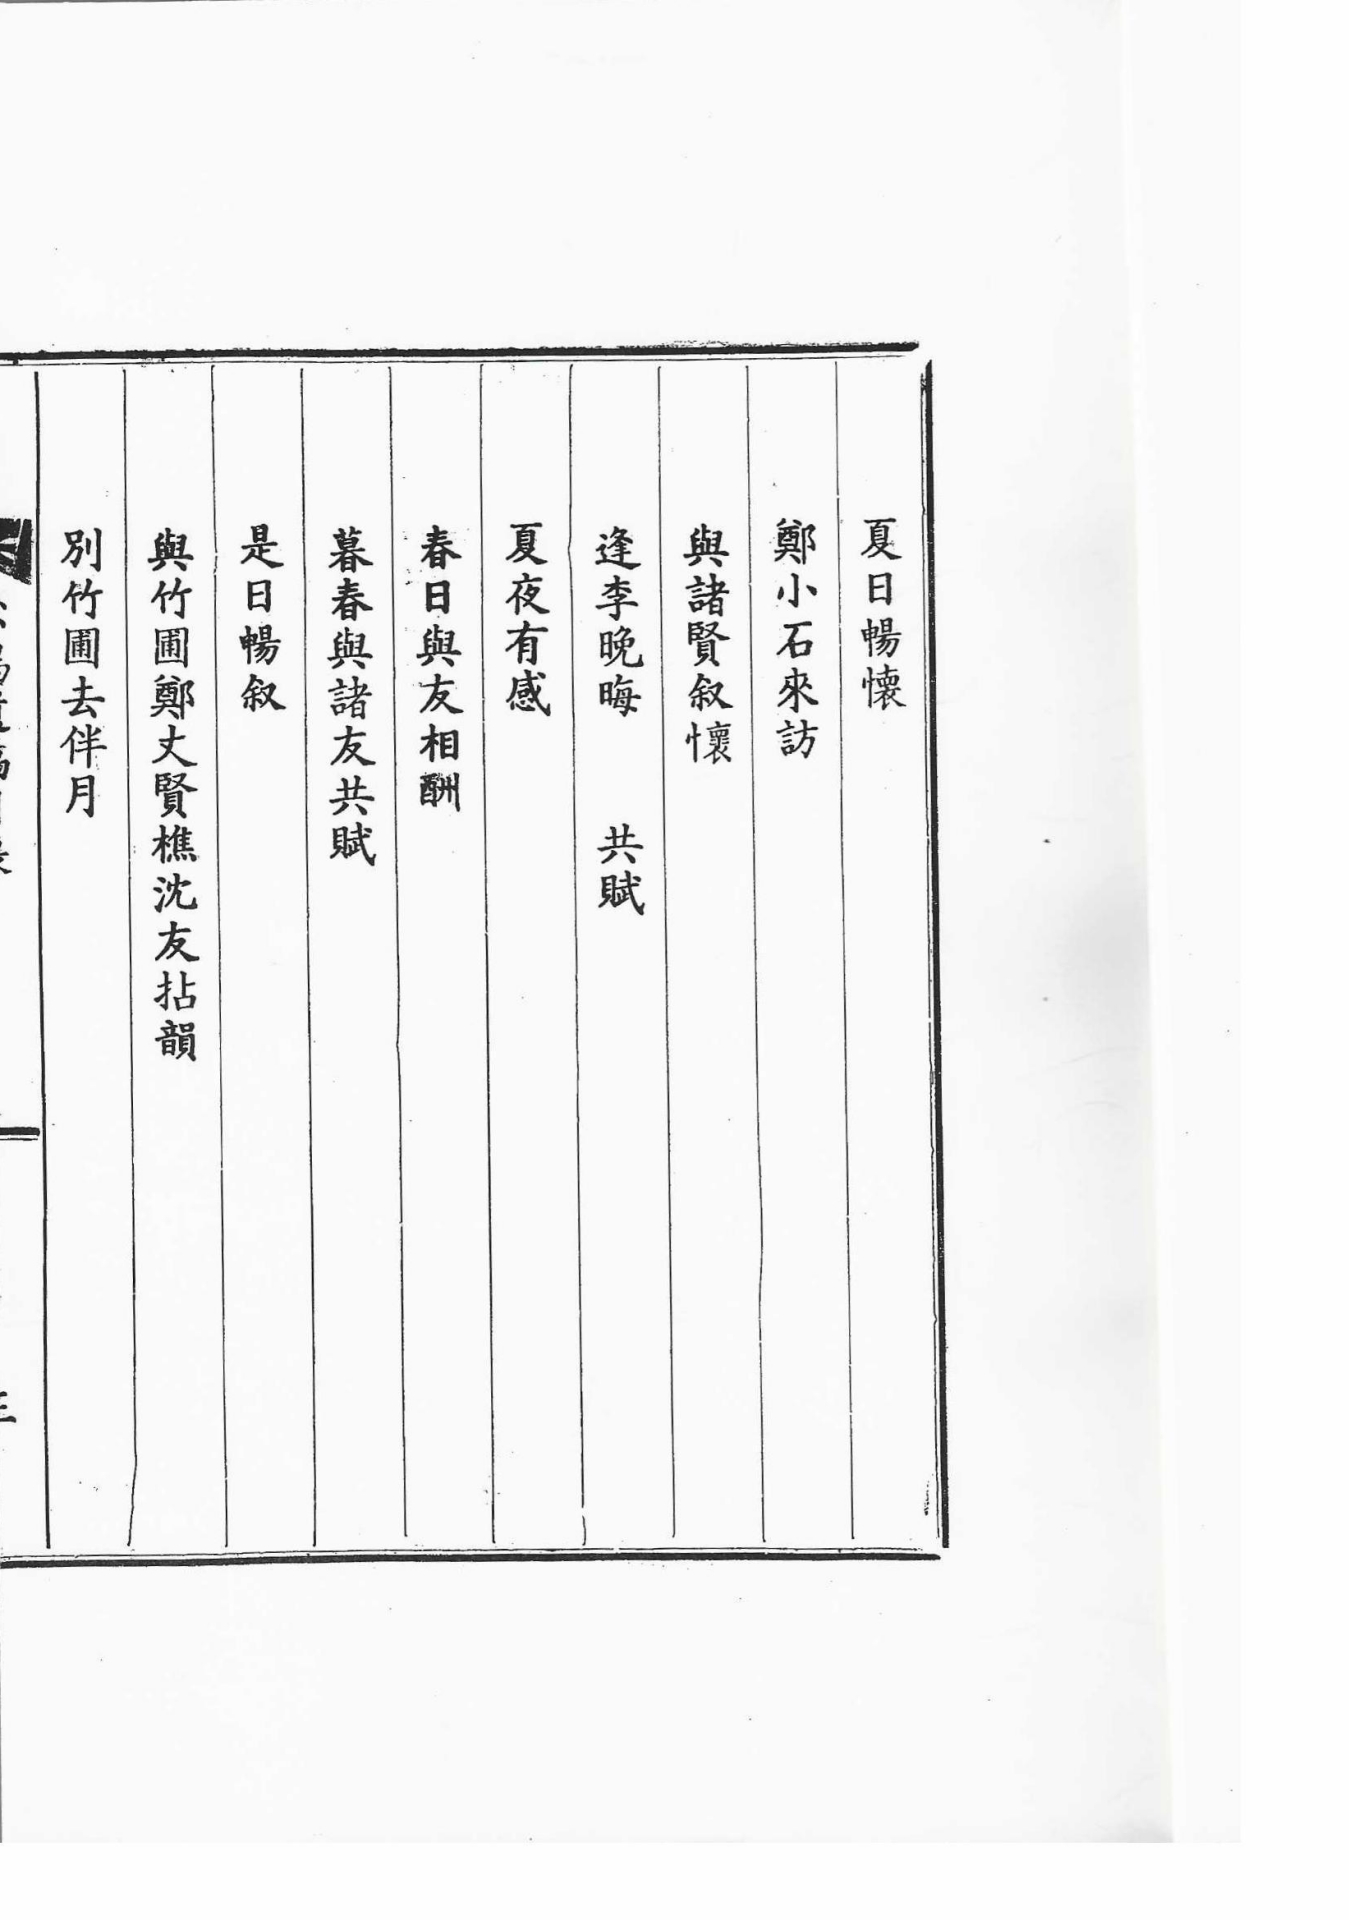 夏日暢懷
鄭小石來訪
與諸賢叙懷
逢李晚晦　共賦
夏夜有感
春日與友相酬
暮春與諸友共賦
是日暢叙
與竹圃鄭丈賢樵沈友拈韻
別竹圃去伴月